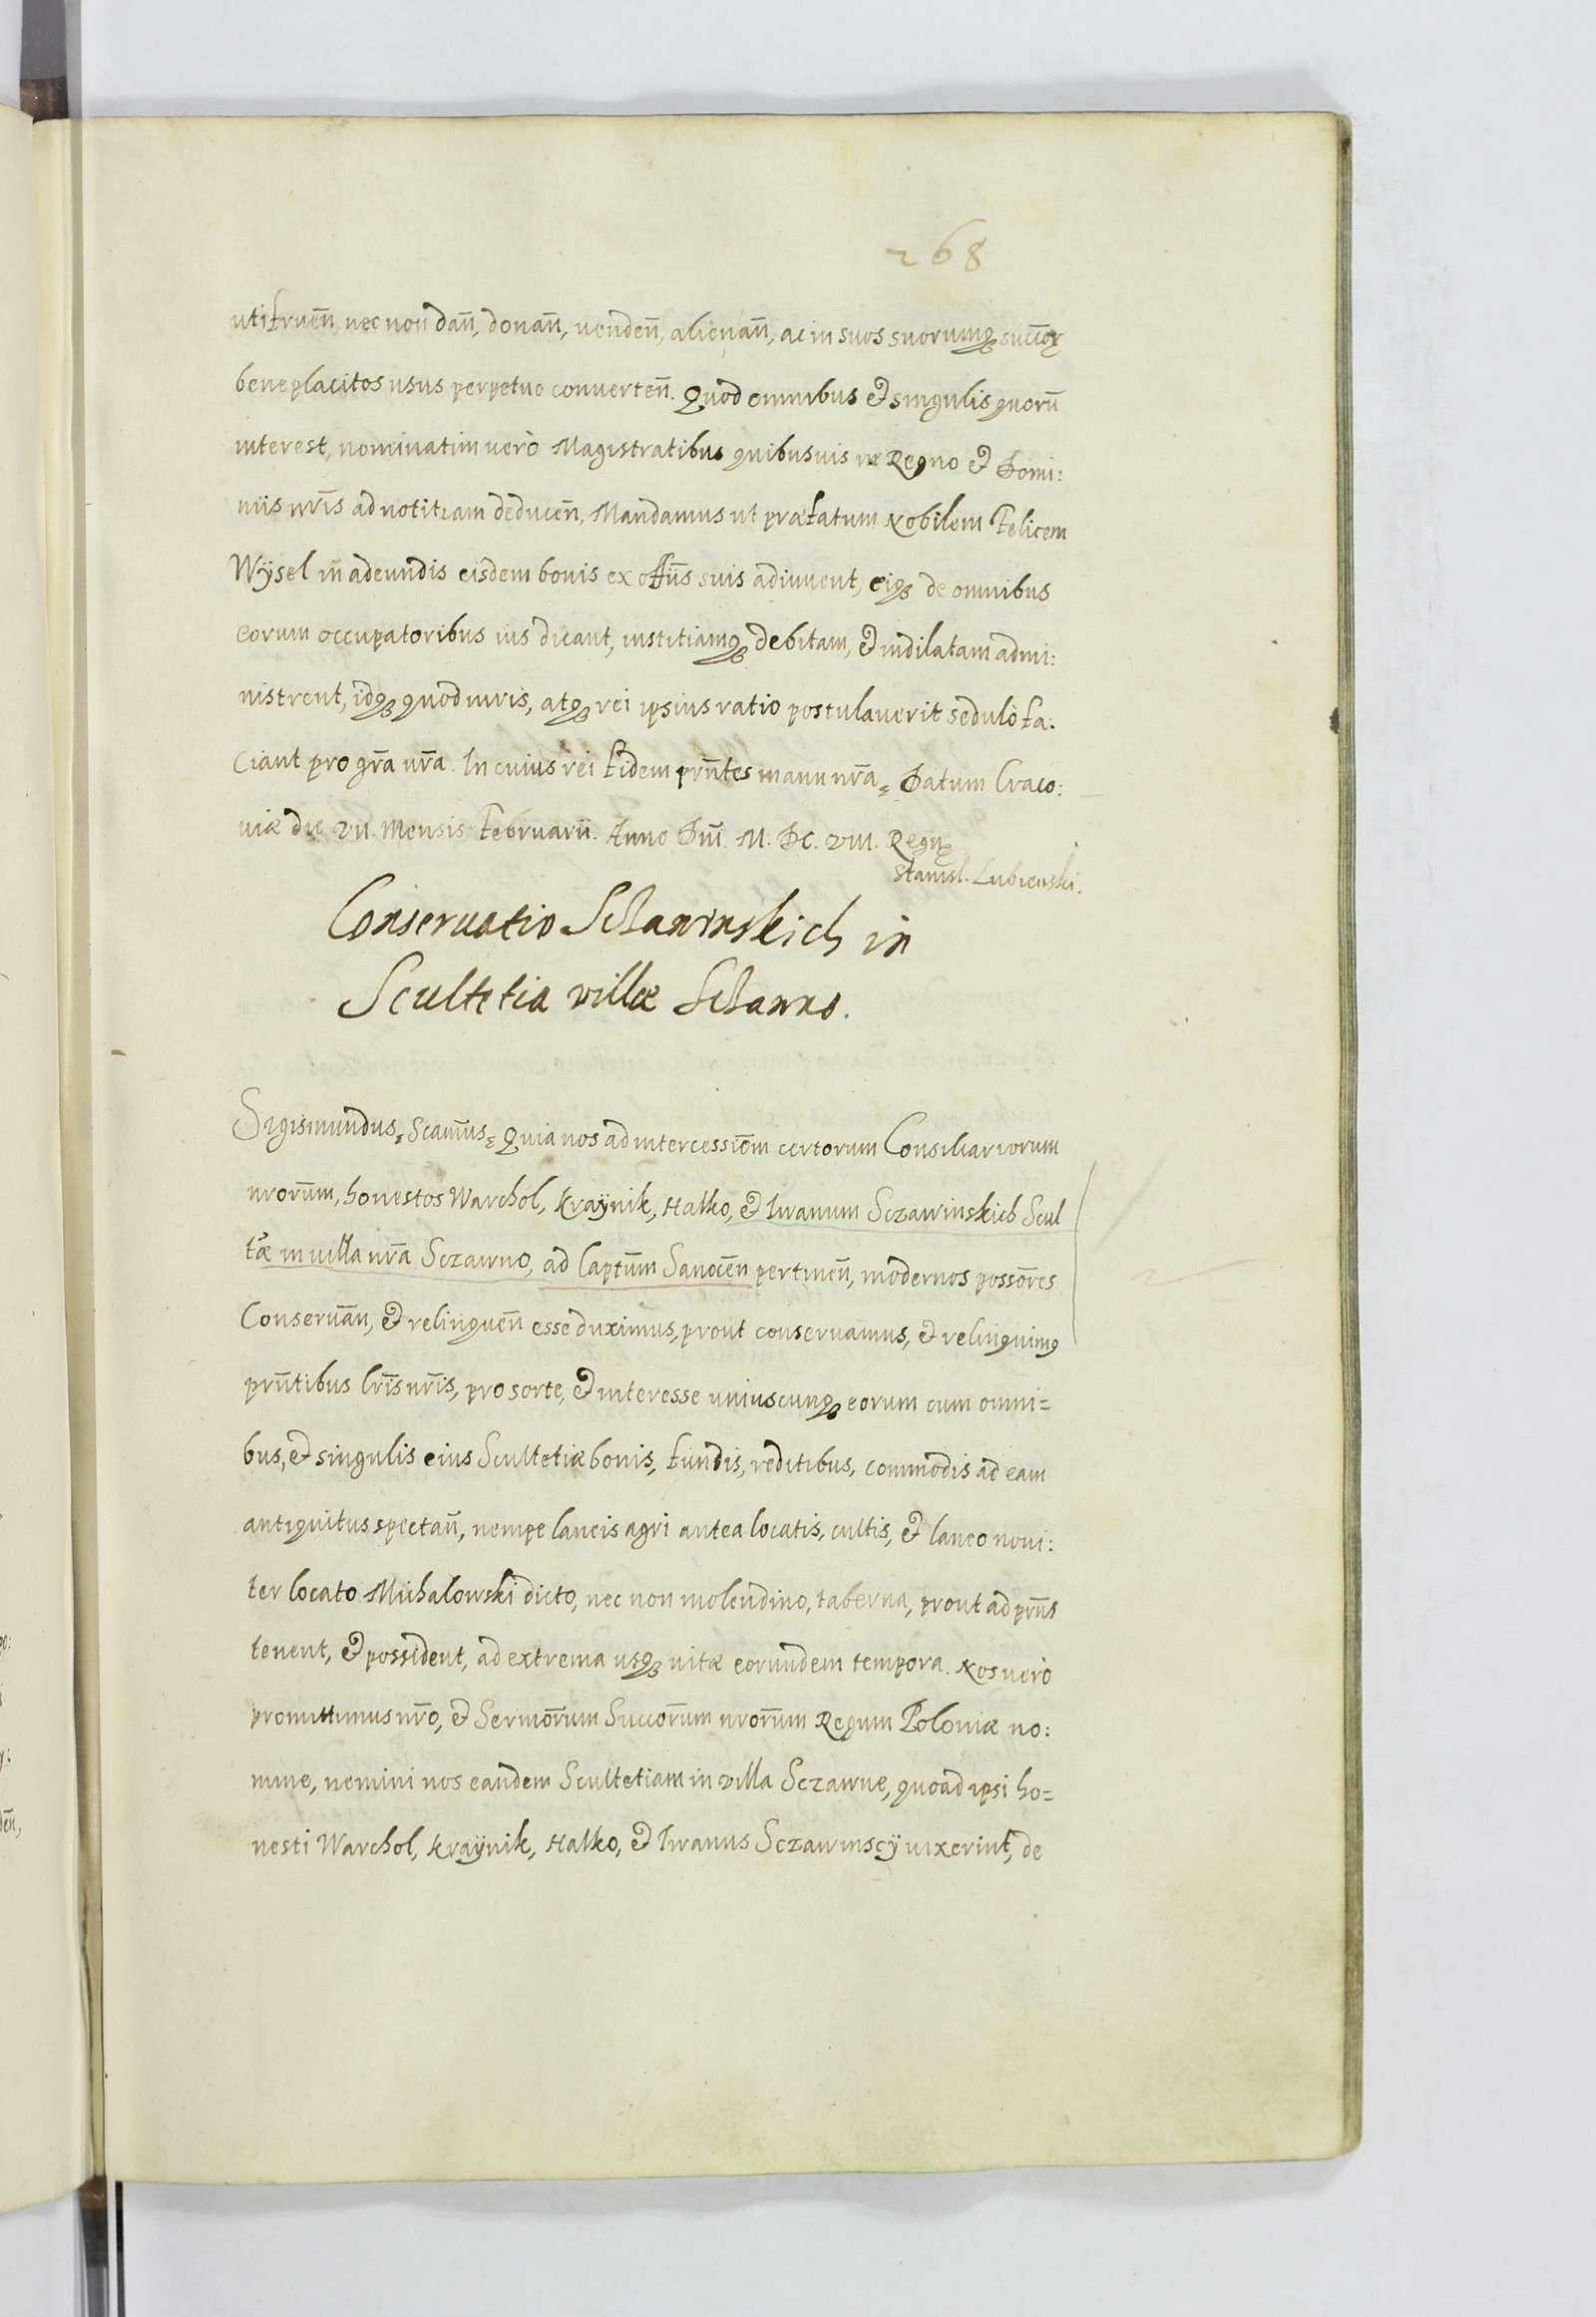 268
utifruen̄, nec non dan̄, donan̄, venden̄, alienan̄, ac in suos suorumq₃ succor
beneplacitos usus perpetuo converten̄. Quod omnibus & singulis quorū
interest, nominatim verò Magistratibus quibusvis in Regno & Domi:
niis nr̄is ad notitiam deducen̄, Mandamus ut præfatum Nobilem Felicem
Wÿsel in adeundis eisdem bonis ex offiīs suis adiuvent, eiq₃ de omnibus
eorum occupatoribus ius dicant, iustitiamq₃ debitam, & indilatam admi:
nistrent, idq₃ quod iuris, atq₃ rei ipsius ratio postulaverit sedulò fa:
ciant pro gr̄a nr̄a. In cuius rei fidem prn̄tes manu nr̄a = Datum Craco:
viæ die VII. Mensis Februarii. Anno Dn̄i. M. DC. VIII. Regn
Stanisl. Lubienski.
Conservatio Sczawinskich in
Scultetia villæ Sczawno.
Sigismundus = Scam̄us = Quia nos ad intercessiōm certorum Consiliariorum
nrōrum, honestos Warchol, Kraÿnik, Halko, & Iwanum Sczawinskich Scul
tæ in villa nr̄a Sczawno, ad Captūm Sanocēn pertinen̄, modernos possōres
Conservān, & relinquēn esse duximus, prout conservamus, & relinquimꝯ
prn̄tibus lr̄is nr̄is, pro sorte, & interesse uniuscunq₃ eorum cum omni=
bus, & singulis eius Scultetiæ bonis, fundis, reditibus, commodis ad eam
antiquitus spectan̄, nempe laneis agri antea locatis, cultis, & laneo novi:
ter locato Michalowski dicto, nec non molendino, taberna, prout ad prn̄s
tenent, & possident, ad extrema usq₃ vitæ eorundem tempora. Nos verò
promittimus nr̄o, & Sermōrum Succōrum nrōrum Regum Poloniæ no:
mine, nemini nos eandem Scultetiam in villa Sczawne, quoad ipsi ho=
nesti Warchol, Kraÿnik, Halko, & Iwanus Sczawinscÿ vixerint, de